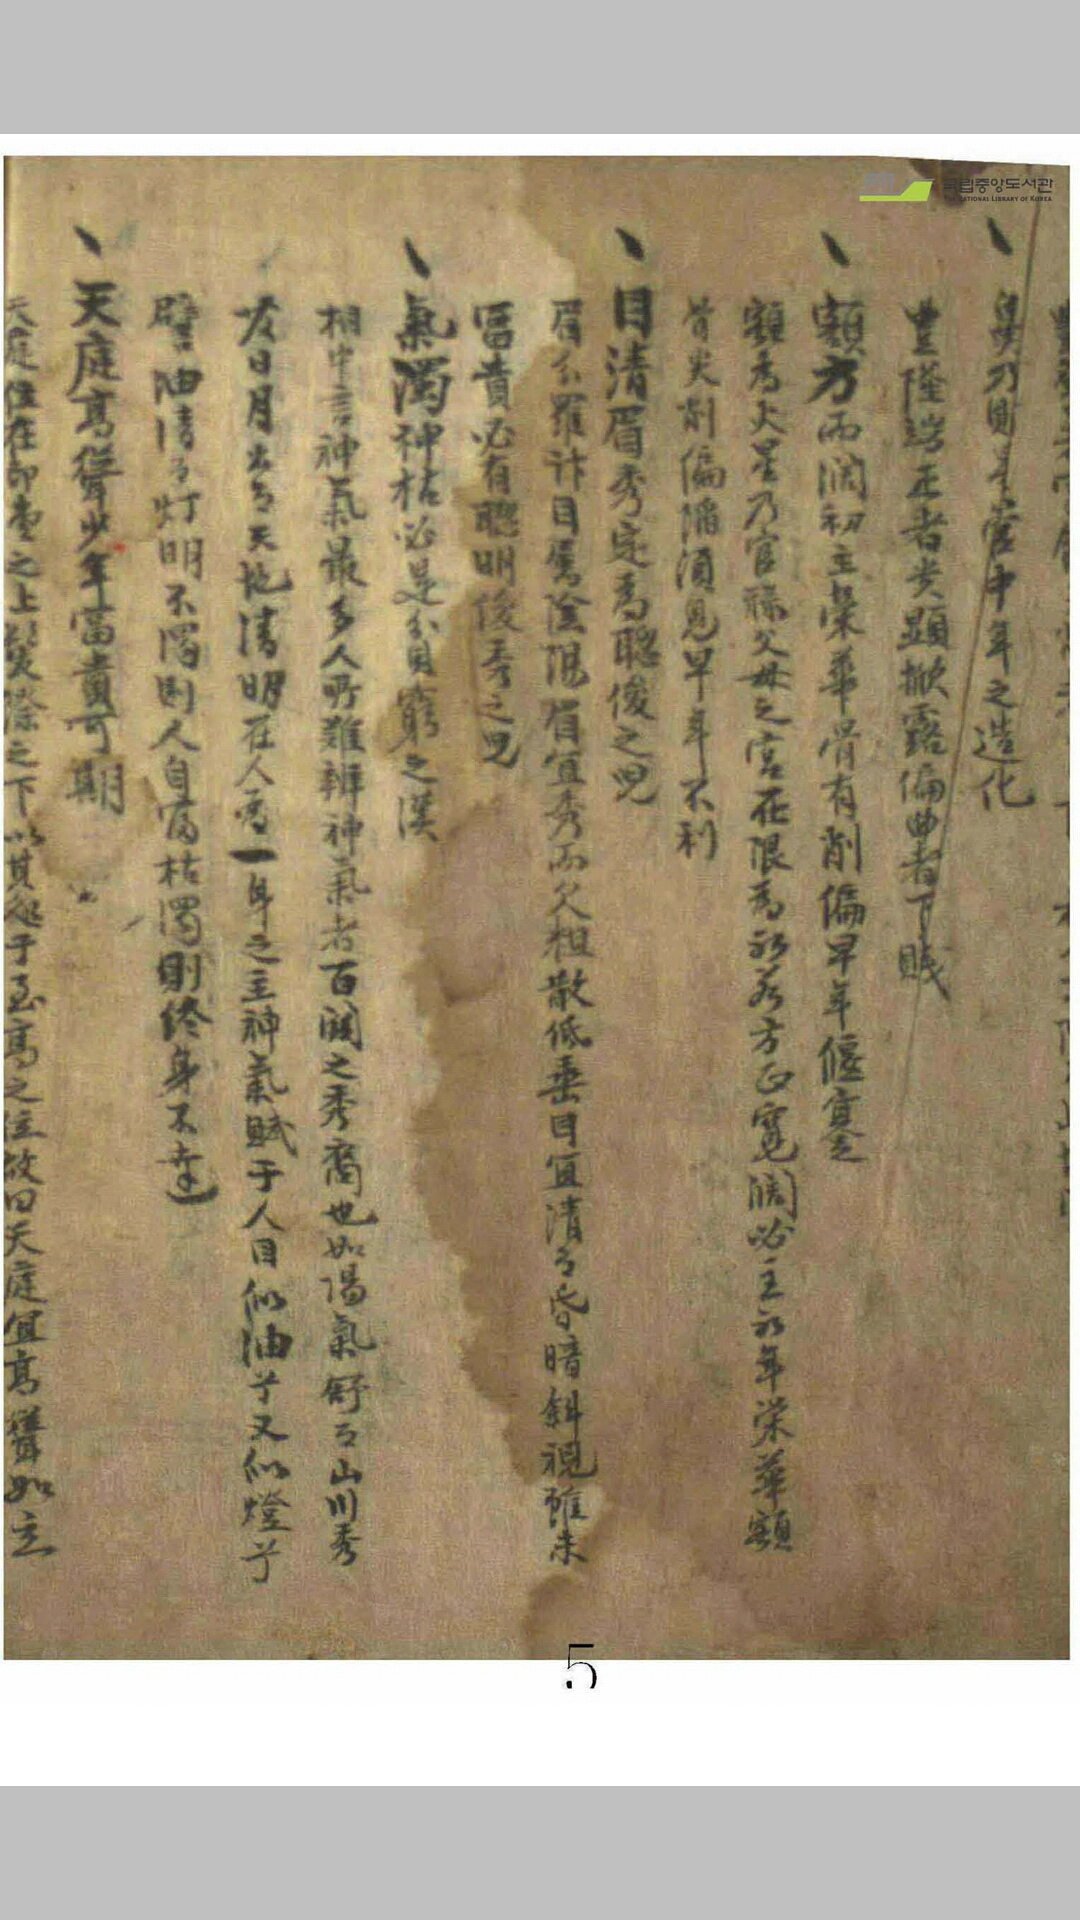 국립중앙도서관
THE NATIONAL LIBRARY OF KOREA
鼻乃財星管中年之造化
豊隆端正者貴顯掀露偏曲者下賤
額方而闊初主榮華骨有削偏早年偃蹇
額爲火星乃官祿父母之宮在限爲初若方正寬闊必主初年榮華額
骨尖削偏陷須見早年不利
目清眉秀定爲聰俊之児
眉分羅計目屬陰陽眉宜秀而欠粗散低垂目宜清而昏暗斜視雖未
富貴必有聰明俊秀之児
氣濁神枯必是貧窮之漢
相中言神氣最多人所難辨神氣者百関之秀裔也如陽氣舒而山川秀
發日月出而天地清明在人爲一身之主神氣賦于人目似油兮又似燈兮
譬油清而灯明不濁則人自富枯濁則終身不幸
天庭高聳少年富貴可期
天庭位在印堂之上髮際之下以其處于至高之位故曰天庭宜高聳如立
5